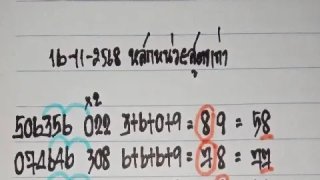 16-11-2568 หลักหน่วยสูตรเก่า
x2
506356 022 3+6+0+9 = 89 = 58
074646 308 6+6+6+9 = 78 = 77